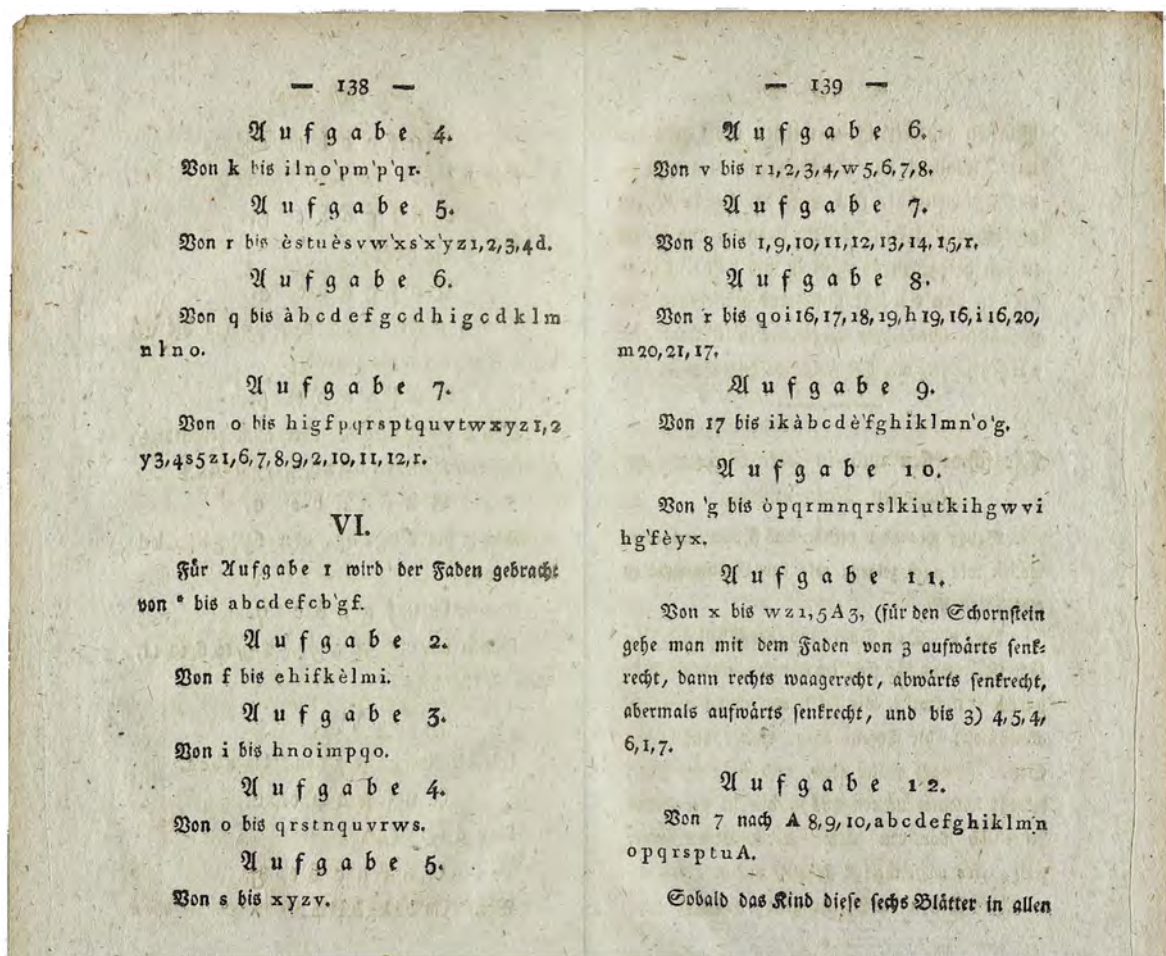 — 138 —
Aufgabe 4.
Von k bis ilno'pm'p'qr.
Aufgabe 5.
Von r bis èstuèsvw'xs'x'yz1,2,3,4d.
Aufgabe 6.
Von q bis àbcdefgcdhigcdklm
nlno.
Aufgabe 7.
Von o bis higfpqrsptquvtwxyz1,2
y3,4s5z1,6,7,8,9,2,10,11,12,r.
VI.
Für Aufgabe 1 wird der Faden gebracht
von * bis abcdefcb'gf.
Aufgabe 2.
Von f bis ehifkèlmi.
Aufgabe 3.
Von i bis hnoimpqo.
Aufgabe 4.
Von o bis qrstnquvrws.
Aufgabe 5.
Von s bis xyzv.
— 139 —
Aufgabe 6.
Von v bis r1,2,3,4,w5,6,7,8.
Aufgabe 7.
Von 8 bis 1,9,10,11,12,13,14,15,r.
Aufgabe 8.
Von r bis qoi16,17,18,19,h19,16,i16,20,
m20,21,17.
Aufgabe 9.
Von 17 bis ikàbcdè'fghiklmn'o'g.
Aufgabe 10.
Von 'g bis òpqrmnqrslkiutkihgwvi
hg'fèyx.
Aufgabe 11.
Von x bis wz1,5A3, (für den Schornstein
gehe man mit dem Faden von 3 aufwärts senk=
recht, dann rechts waagerecht, abwärts senkrecht,
abermals aufwärts senkrecht, und bis 3) 4,5,4,
6,1,7.
Aufgabe 12.
Von 7 nach A 8,9,10,abcdefghiklmn
opqrsptuA.
Sobald das Kind diese sechs Blätter in allen